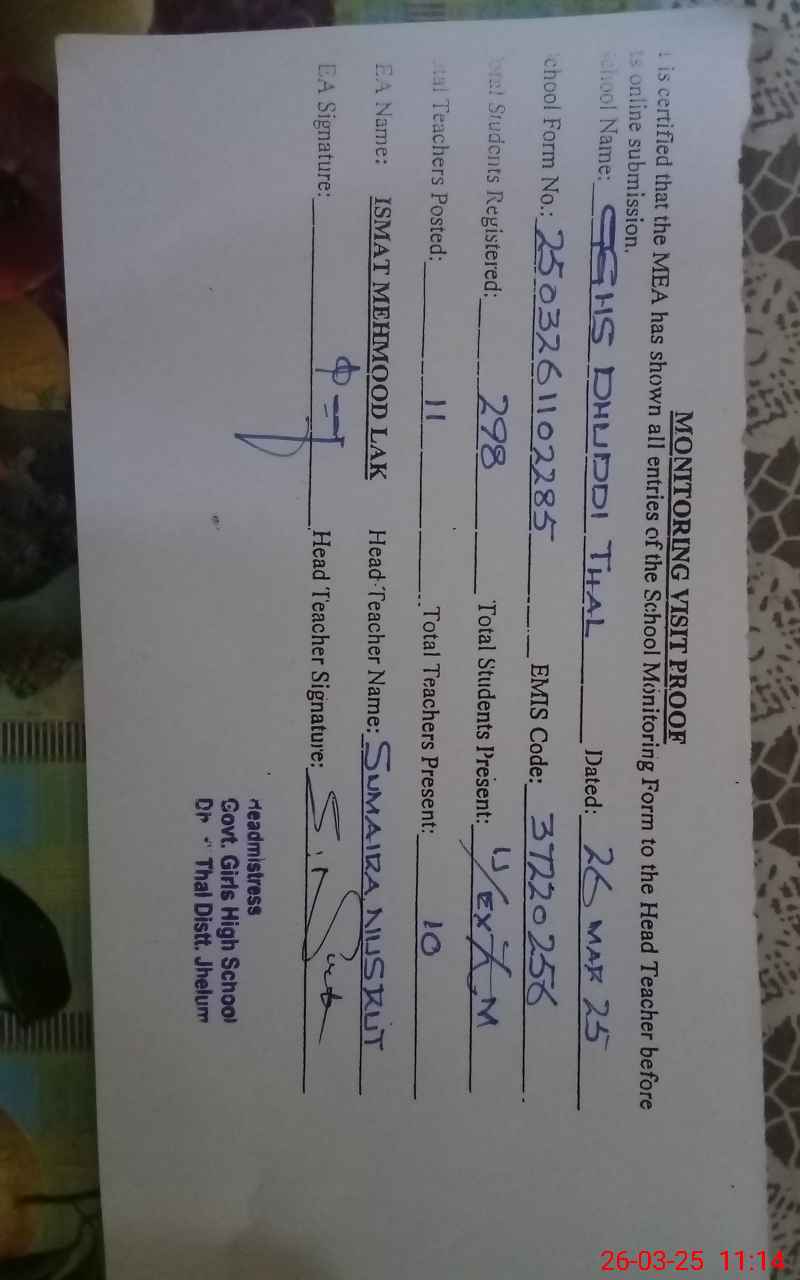 MONITORING VISIT PROOF
t is certified that the MEA has shown all entries of the School Monitoring Form to the Head Teacher before
ts online submission.
chool Name: GGHS DHUDDI THAL Dated: 26 MAR 25
chool Form No.: 250326110 2285 EMIS Code: 37220256
otal Students Registered: 298 Total Students Present: U/EXM
tal Teachers Posted: 11 Total Teachers Present: 10
EA Name: ISMAT MEHMOOD LAK Head Teacher Name: SUMAIRA NUSRUT
EA Signature: Head Teacher Signature:
Headmistress
Govt. Girls High School
Thal Distt. Jhelum
26-03-25 11:14